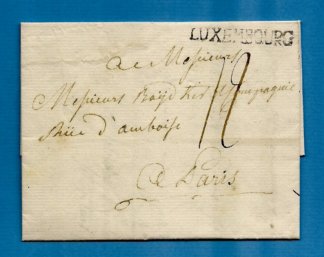 LUXEMBOURG
a Messieurs
Messieurs Boyd et Compagnie
Rüe d'amboise
12
a Paris